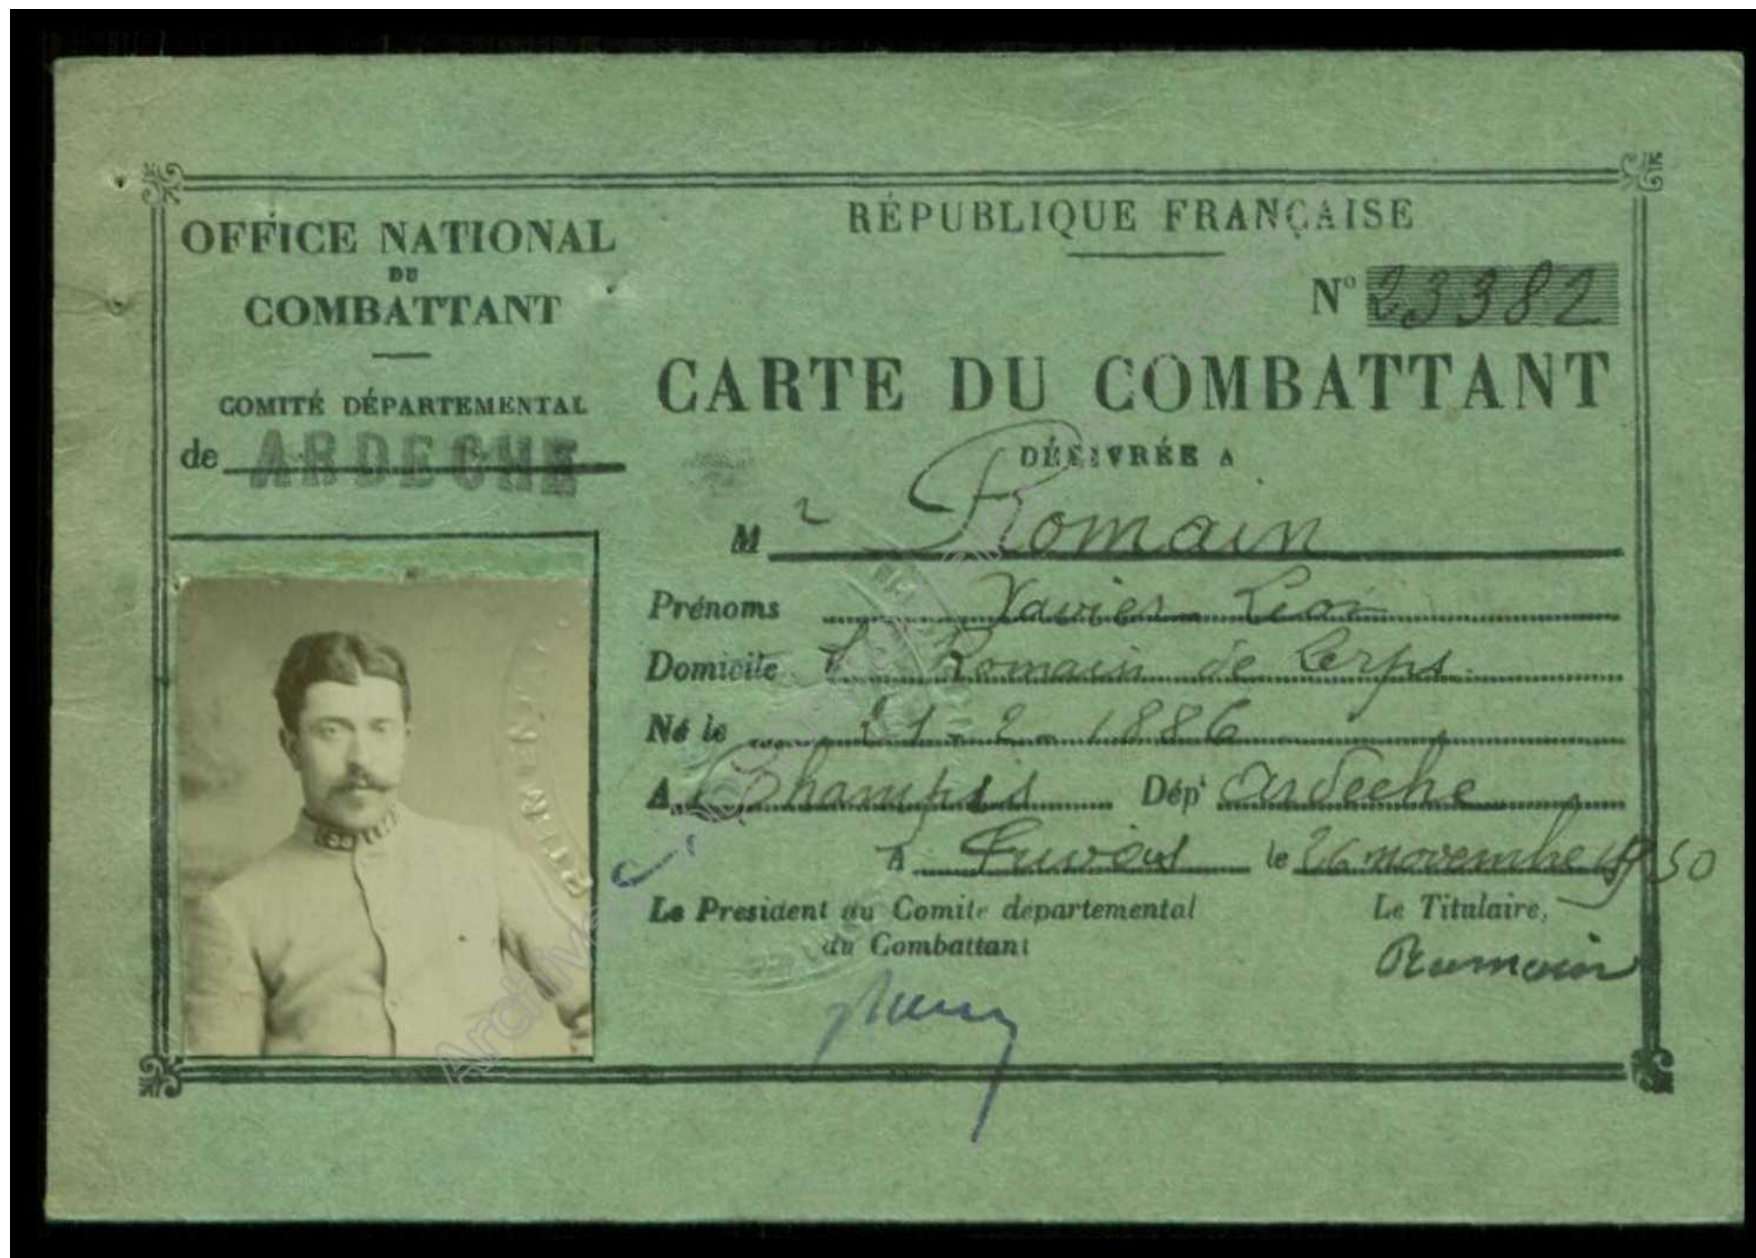 OFFICE NATIONAL
DU
COMBATTANT
COMITÉ DÉPARTEMENTAL
de ARDECHE
RÉPUBLIQUE FRANÇAISE
N° 23382
CARTE DU COMBATTANT
DÉLIVRÉE A
M r Romain
Prénoms Xavier Léon
Domicile St Romain de Lerps
Né le 21-2-1886
A Champis Dépt Ardeche
A Privas le 26 novembre 1950
Le President du Comite departemental
du Combattant
Le Titulaire,
Romain